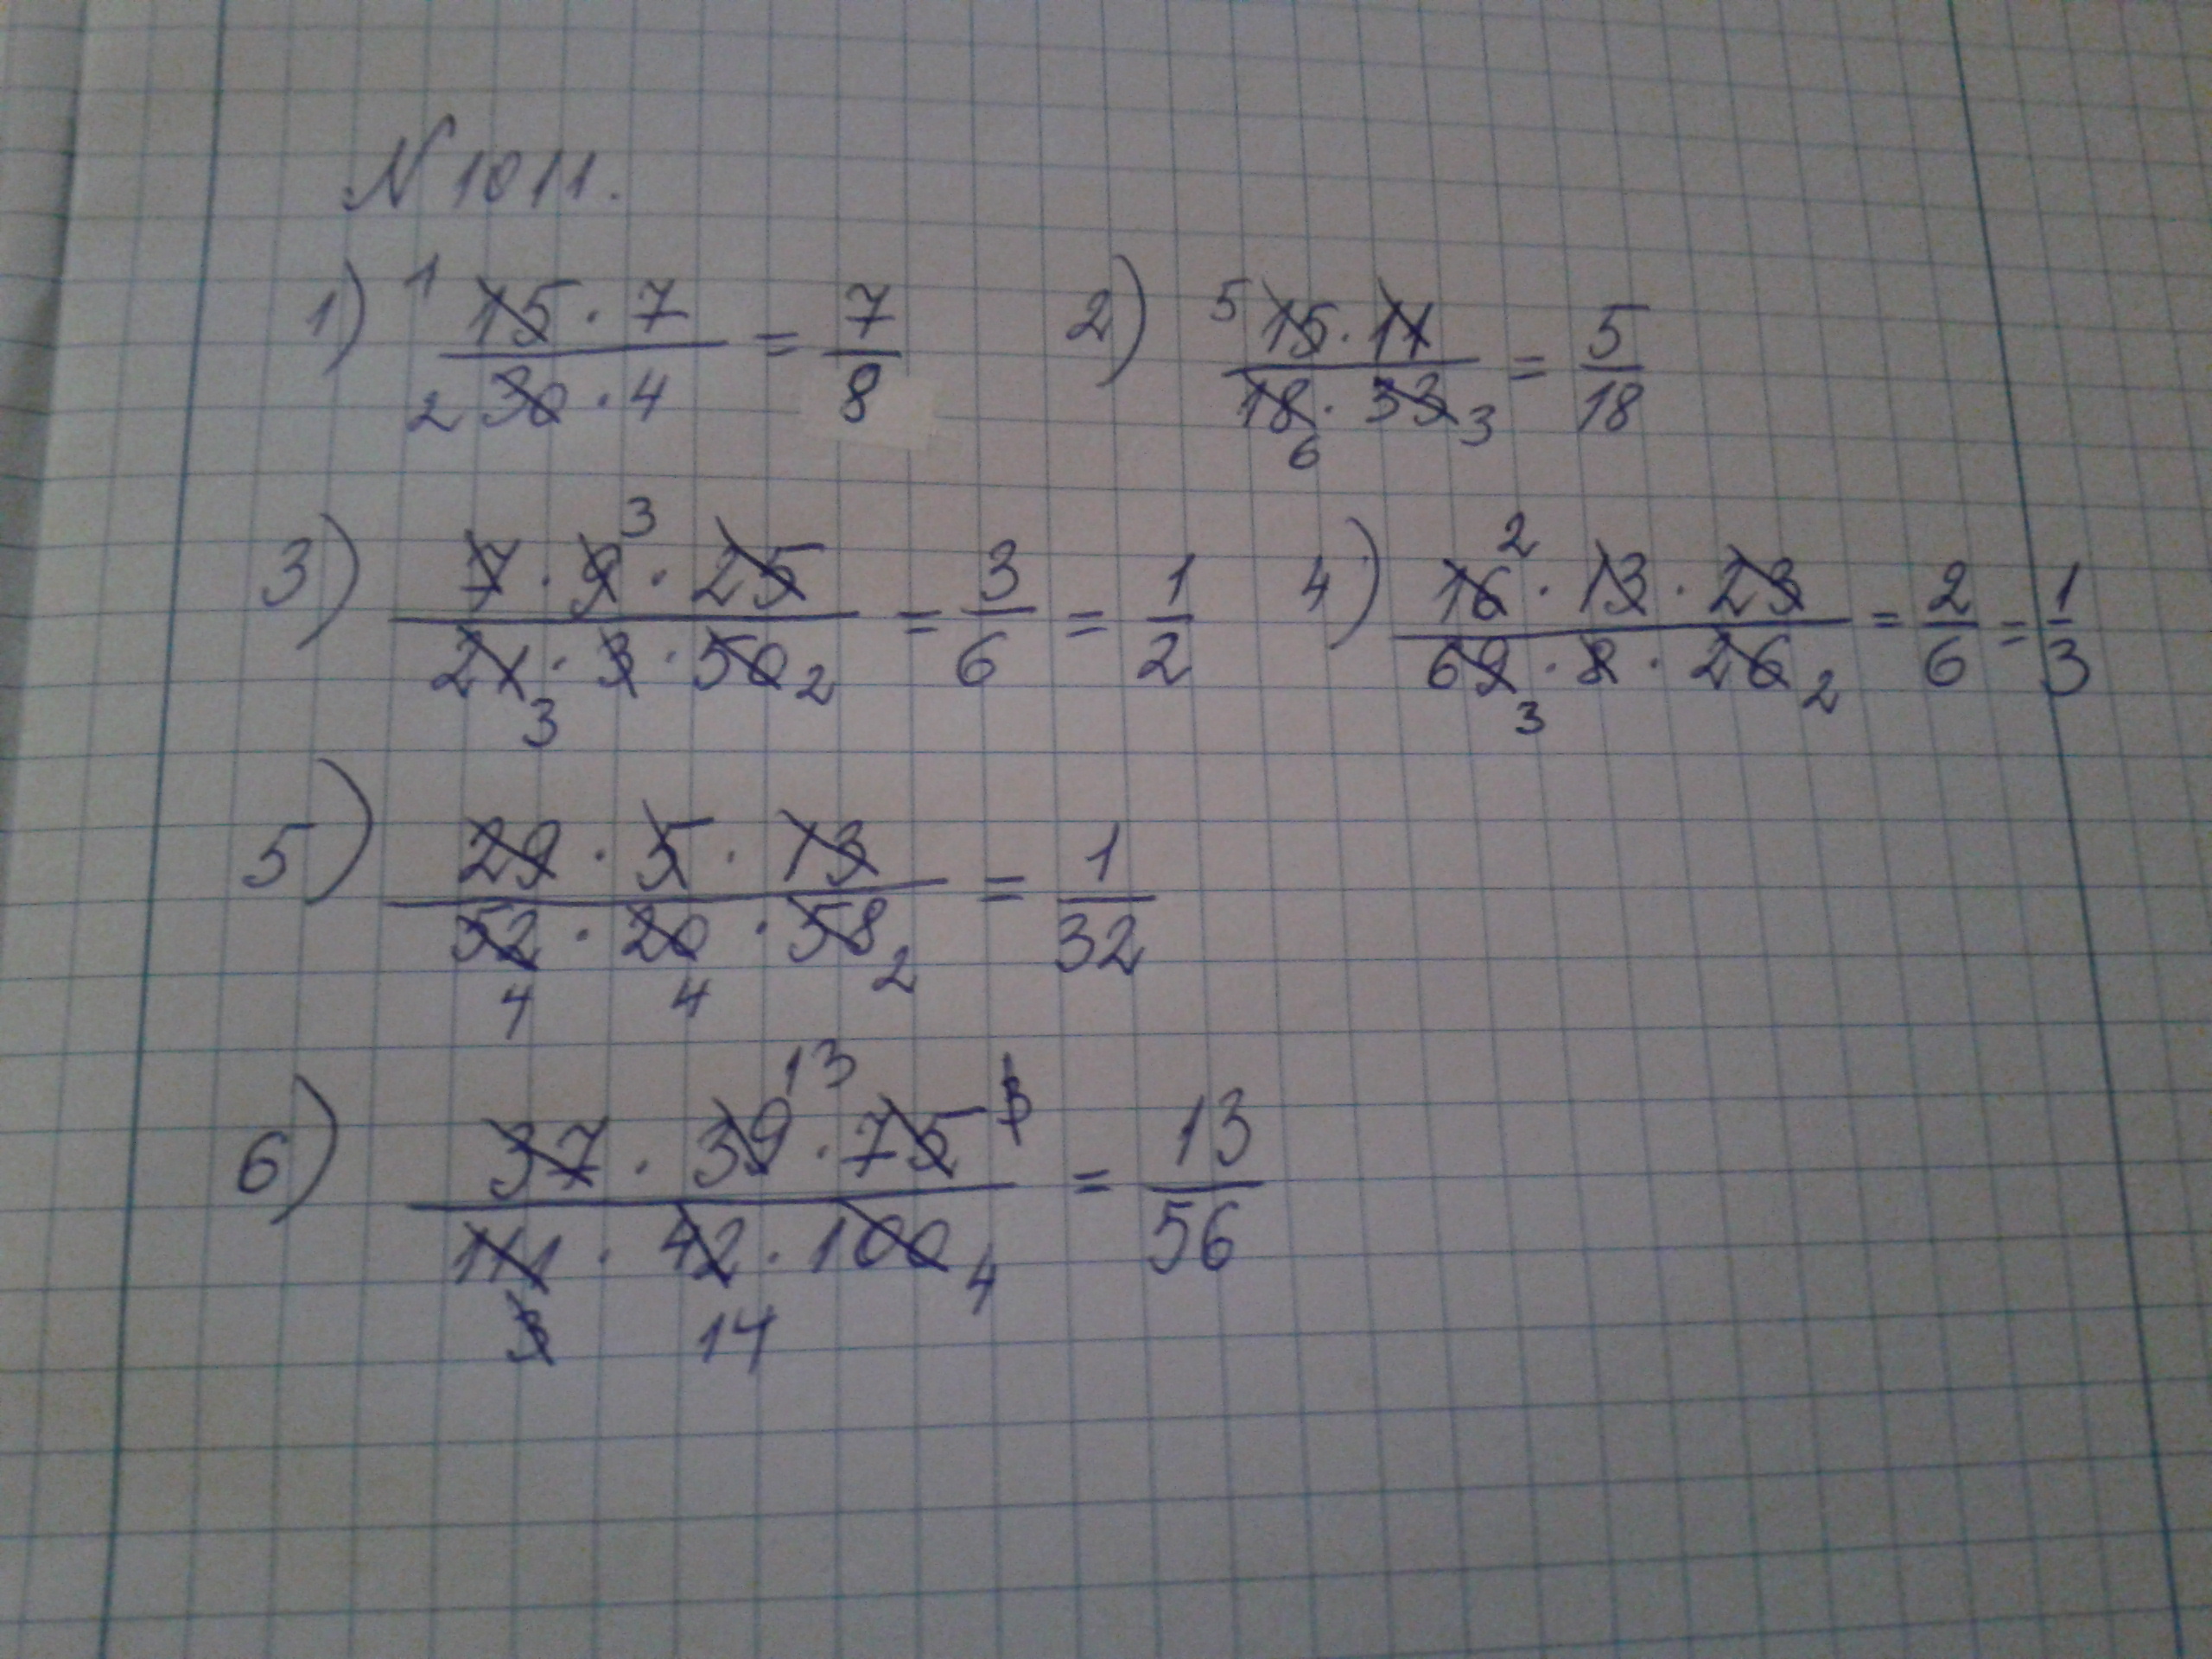 N 1011.
1) 1 15 · 7 / 2 30 · 4 = 7/8 2) 5 15 · 11 / 18 6 · 33 3 = 5/18
3) 7 · 9 3 · 25 / 21 3 · 3 · 50 2 = 3/6 = 1/2 4) 16 2 · 13 · 23 / 69 3 · 8 · 26 2 = 2/6 = 1/3
5) 29 · 5 · 13 / 52 4 · 20 4 · 58 2 = 1/32
6) 37 · 39 13 · 75 3 / 111 3 · 42 14 · 100 4 = 13/56